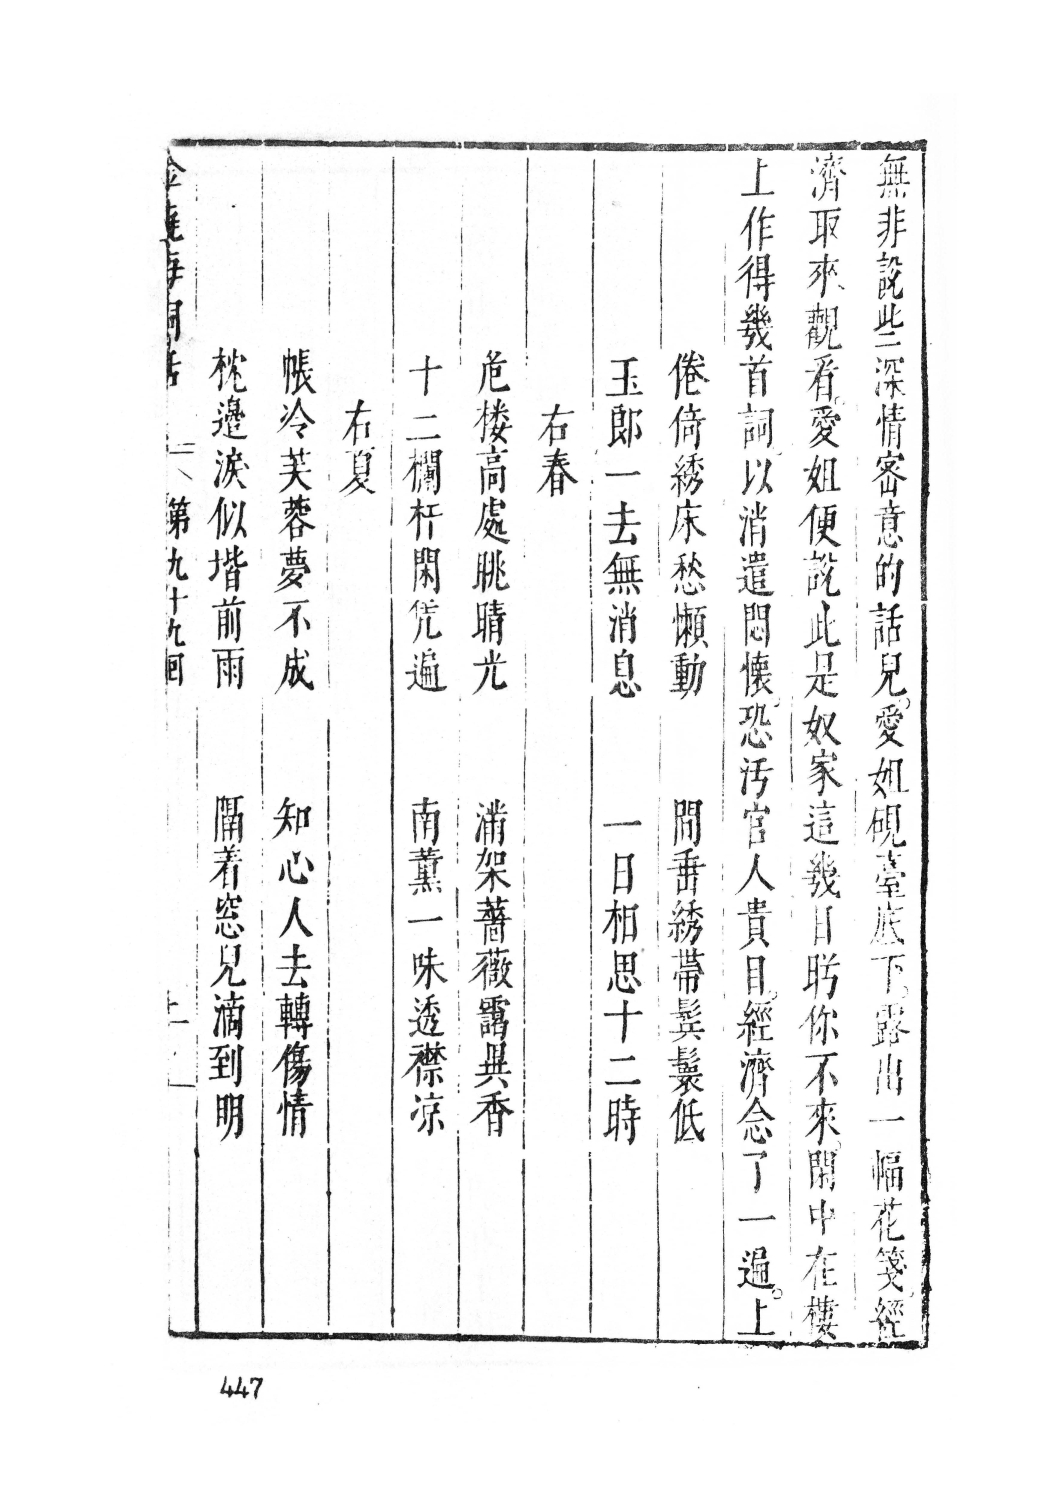 無非説些深情密意的話兒。愛姐硯臺底下。露出一幅花箋。經
濟取來觀看。愛姐便説此是奴家這幾日盼你不來。閑中在樓
上作得幾首詞。以消遣悶懷。恐汚官人貴目。經濟念了一遍。上
倦倚綉床愁懶動　閒垂綉帶鬓鬟低
玉郎一去無消息　一日相思十二時
右春
危楼高處眺晴光　滿架薔薇靄異香
十二欄杆閑凭遍　南薰一味透襟凉
右夏
帳冷芙蓉夢不成　知心人去轉傷情
枕邊淚似堦前雨　隔着窓兒滴到明
金瓶梅詞話　第九十九囘　十一
447